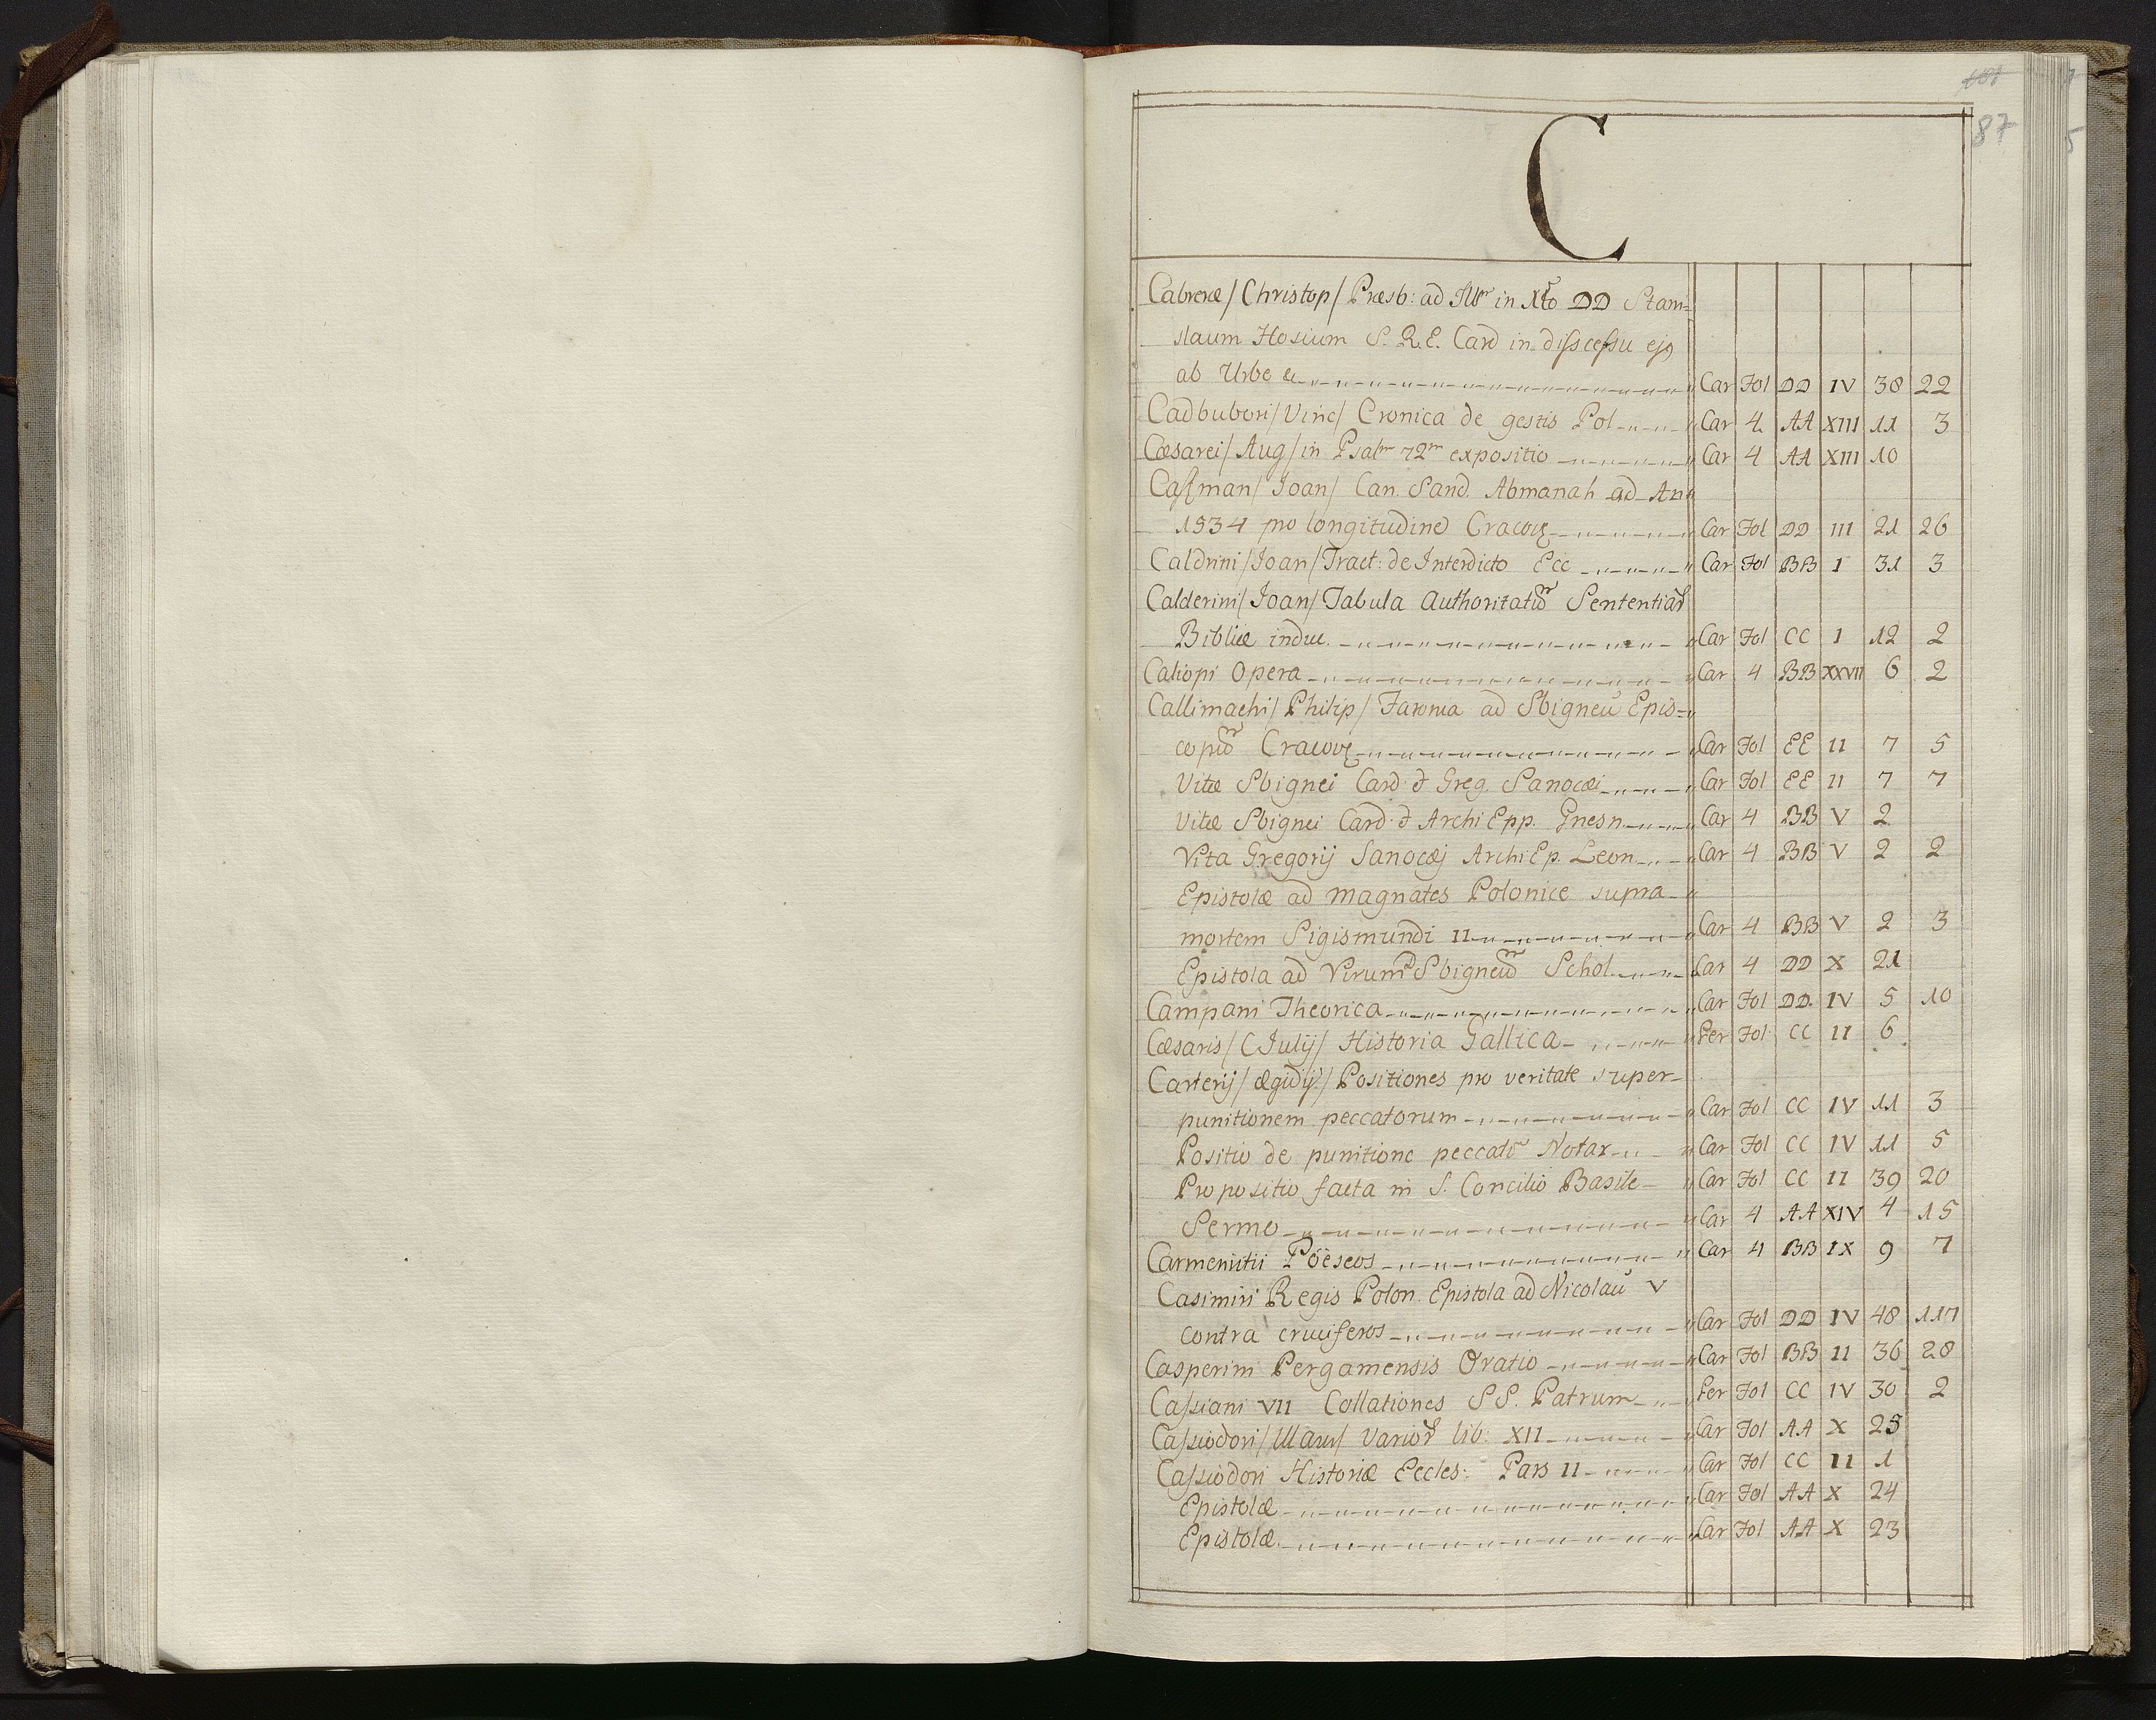 87
C
Cabreræ / Christop / Præsb: ad Illr in Xto DD Stani=
slaum Hosium S. R. E. Card in disscessu ejq
ab Urbe & Car Fol DD IV 38 22
Cadbubori / Vinc / Cronica de gestis Pol Car 4 AA XIII 11 3
Cæsarei / Aug / in Psalm 72m expositio Car 4 AA XIII 10
Casman / Joan / Can. Sand. Abmanah ad An
1534 pro longitudine Cracoviæ Car Fol DD III 21 26
Caldrini / Joan / Tract: de Interdicto Ecc Car Fol BB I 31 3
Calderini / Joan / Tabula Authoritatū Sententiar
Bibliæ induc. Car Fol CC I 12 2
Caliopi Opera Car 4 BB XXVII 6 2
Callimachi / Philip / ad Sbigneū Epis=
copū Cracoviæ Car Fol EE II 7 5
Vitæ Sbignei Card. & Greg. Sanocæi Car Fol EE II 7 7
Vitæ Sbignei Card. & Archi Epp. Gnesn Car 4 BB V 2
Vita Gregorij Sanocæj Archi Ep. Leon Car 4 BB V 2 2
Epistolæ ad Magnates Polonice supra
mortem Sigismundi II Car 4 BB V 2 3
Epistola ad Virum Sbigneū Schol Car 4 DD X 21
Campani Theorica Car Fol DD. IV 5 10
Cæsaris / C Julij / Historia Gallica Per Fol CC II 6
Carterij / ægidij / Positiones pro veritate super
punitionem peccatorum Car Fol CC IV 11 3
Positio de punitione peccato Notar Car Fol CC IV 11 5
Propositio facta in S. Concilio Basile Car Fol CC II 39 20
Sermo Car 4 AA XIV 4 15
Carmenitii Pöeseos Car 4 BB IX 9 7
Casimiri Regis Polon. Epistola ad Nicolaū V
contra cruciferos Car Fol DD IV 48 117
Casperini Pergamensis Oratio Car Fol BB II 36 28
Cassiani VII Collationes SS. Patrum Per Fol CC IV 30 2
Cassiodori / Maur / Varior lib. XII Car Fol AA X 25
Cassiodori Historiæ Eccles: Pars II Car Fol CC II 1
Epistolæ Car Fol AA X 24
Epistolæ Car Fol AA X 23